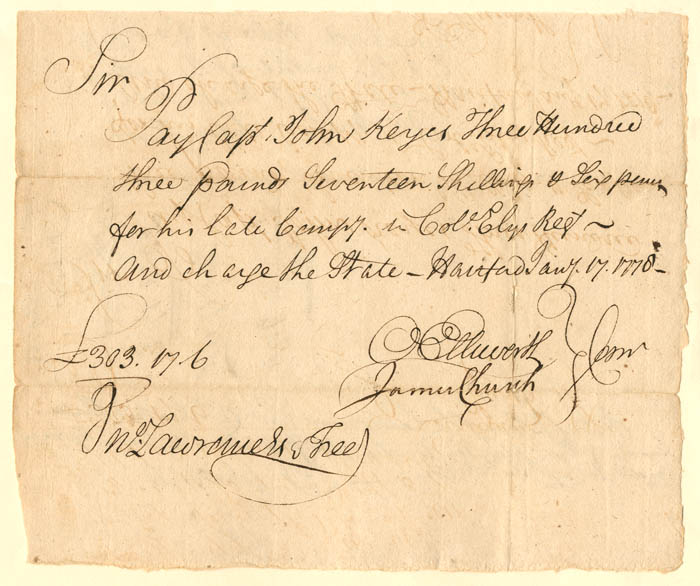 Sir
Pay Capt. John Keyes Three Hundred
three pounds Seventeen Shillings & Six pence
for his late Compy. in Colo. Elys Regt ~
and charge the State – Hartford Jany. 17. 1778 –
£303. 17. 6
O Ellsworth
James Church } Com
Jno. Lawrence Esqr Treer